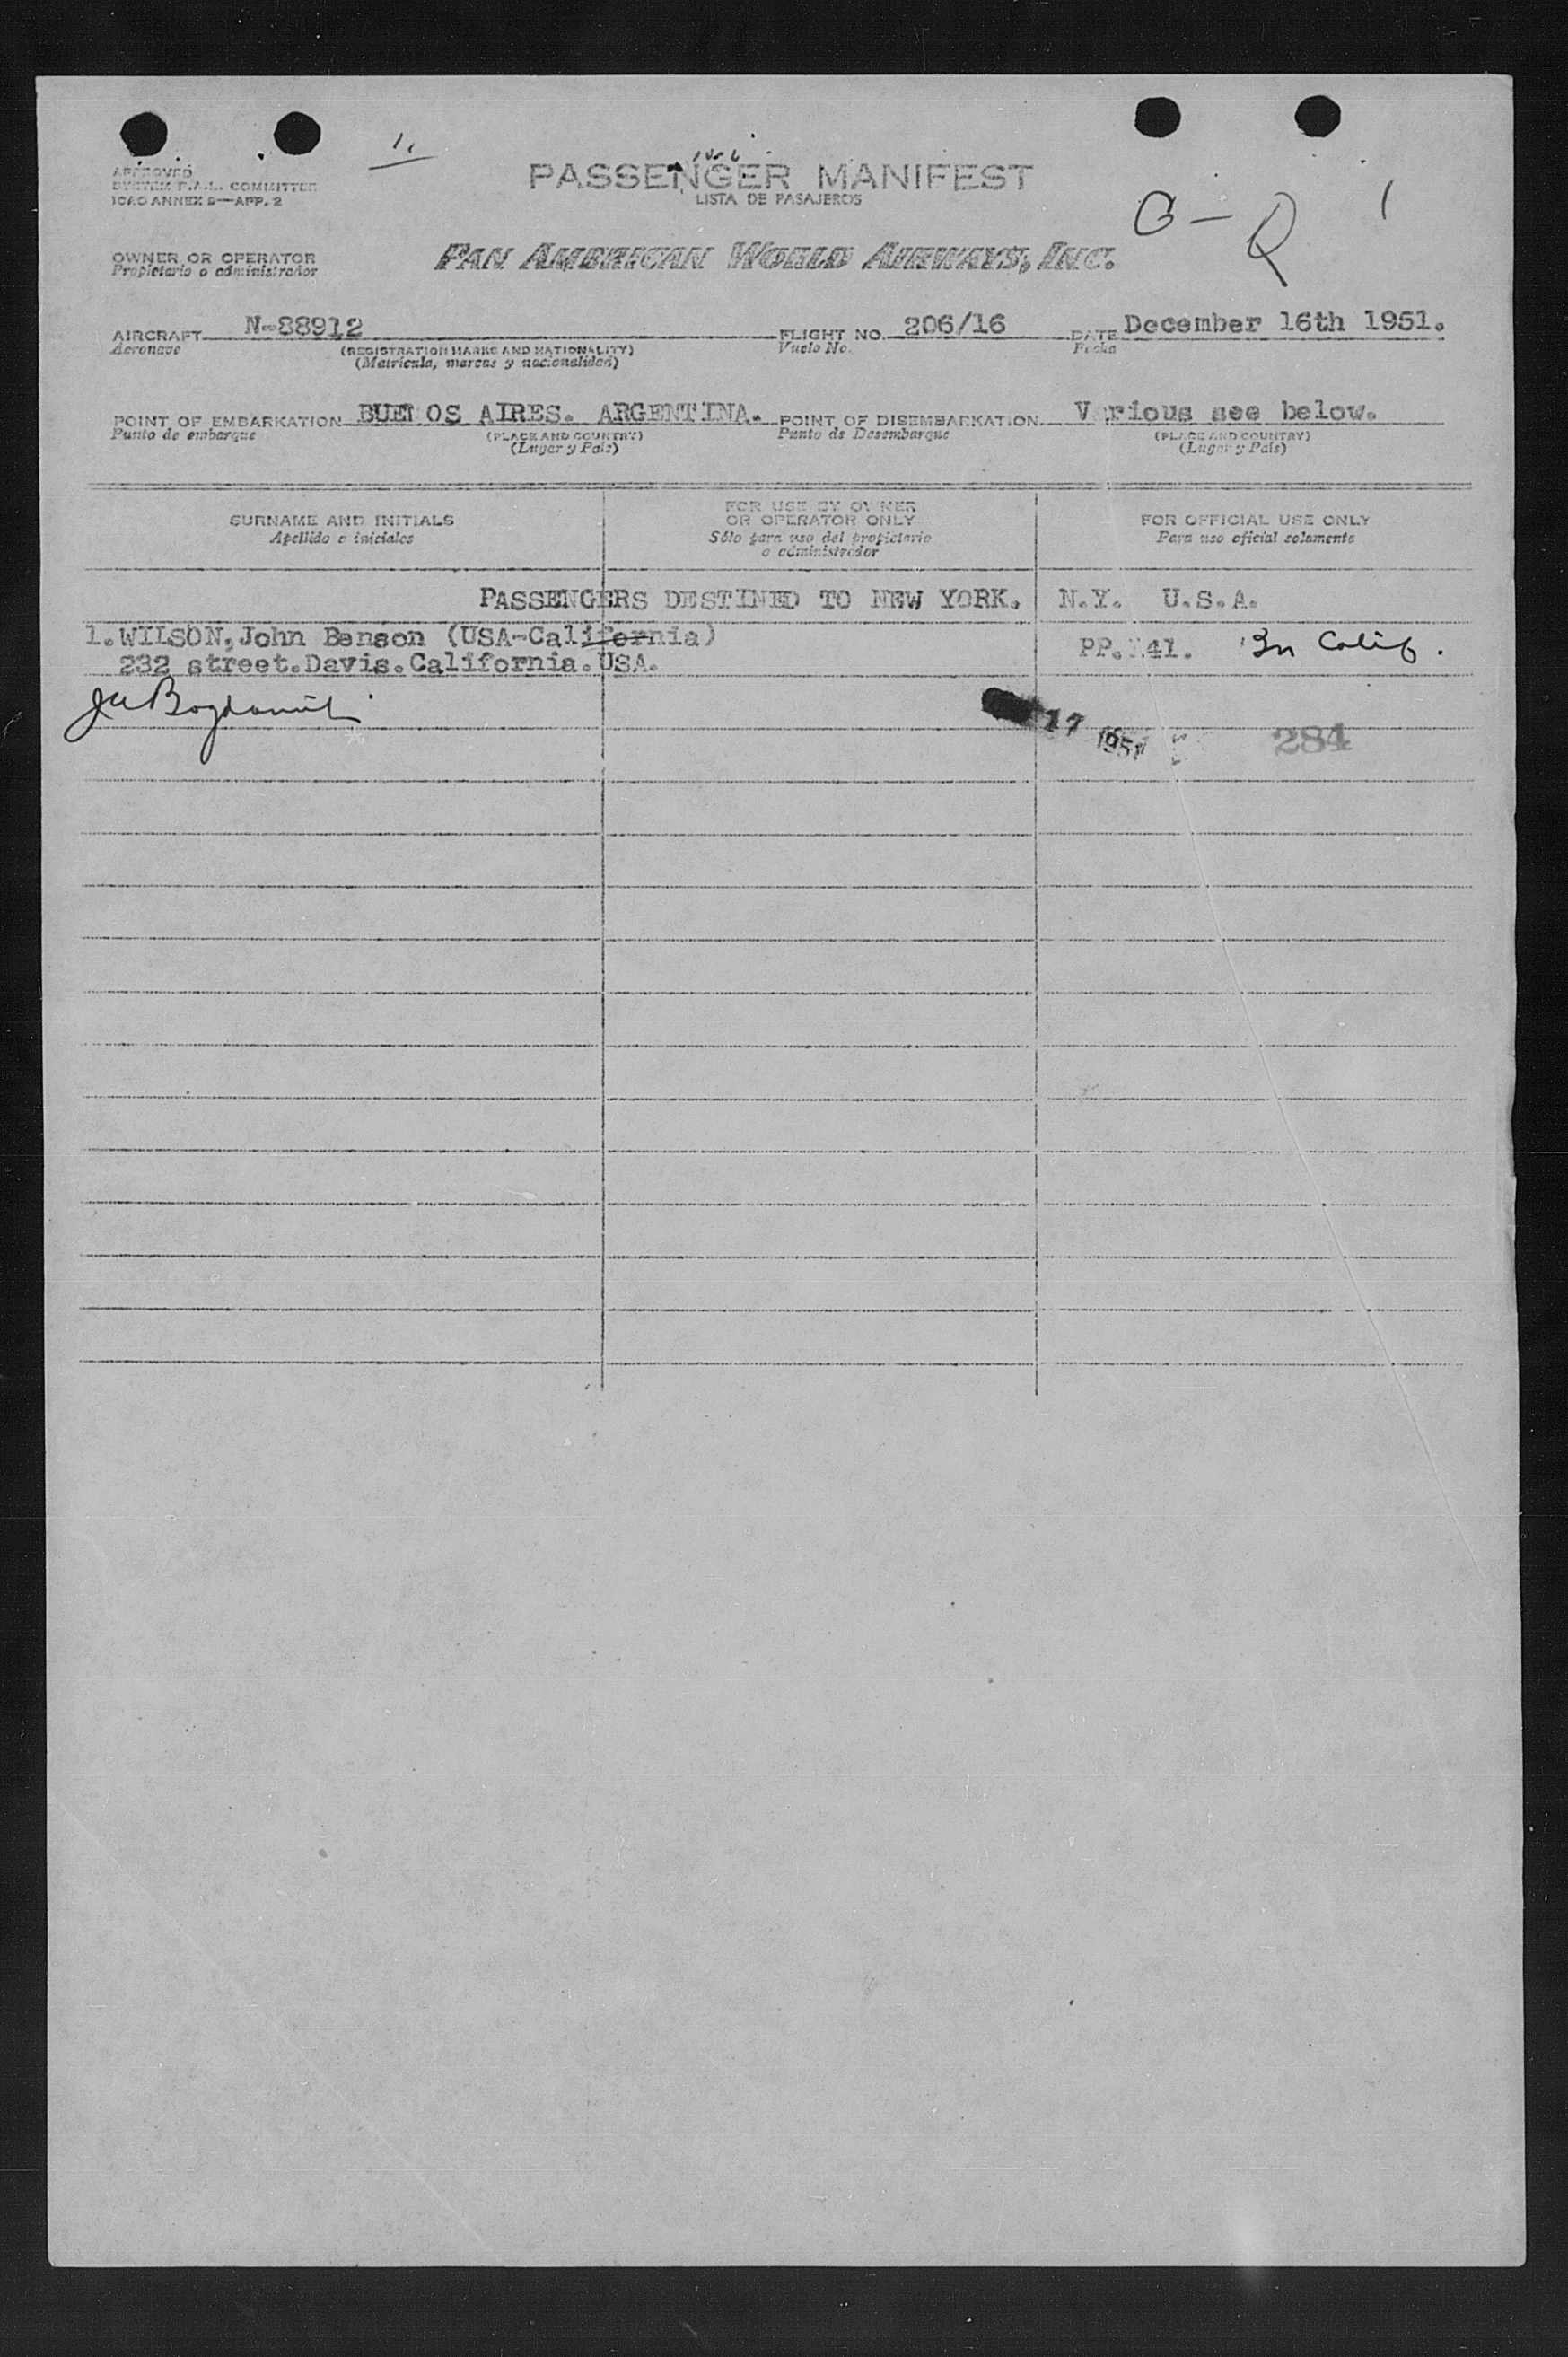 1.
PASSENGER MANIFEST
LISTA DE PASAJEROS
APPROVED
SYSTEM F.A.L. COMMITTEE
ICAO ANNEX 9—APP. 2
G-Q 1
OWNER OR OPERATOR
Propietario o administrador
PAN AMERICAN WORLD AIRWAYS, INC.
AIRCRAFT N-88912 FLIGHT NO. 206/16 DATE December 16th 1951.
Aeronave (REGISTRATION MARKS AND NATIONALITY) Vuelo No. Fecha
(Matrícula, marcas y nacionalidad)
POINT OF EMBARKATION BUENOS AIRES. ARGENTINA. POINT OF DISEMBARKATION Various see below.
Punto de embarque (PLACE AND COUNTRY) Punto de Desembarque (PLACE AND COUNTRY)
(Lugar y País) (Lugar y País)
SURNAME AND INITIALS
Apellido e iniciales
FOR USE BY OWNER
OR OPERATOR ONLY
Sólo para uso del propietario
o administrador
FOR OFFICIAL USE ONLY
Para uso oficial solamente
PASSENGERS DESTINED TO NEW YORK. N.Y. U.S.A.
1.WILSON,John Benson (USA-California)
232 street.Davis.California.USA.
PP. 41. Bn Calif.
17 1951 284